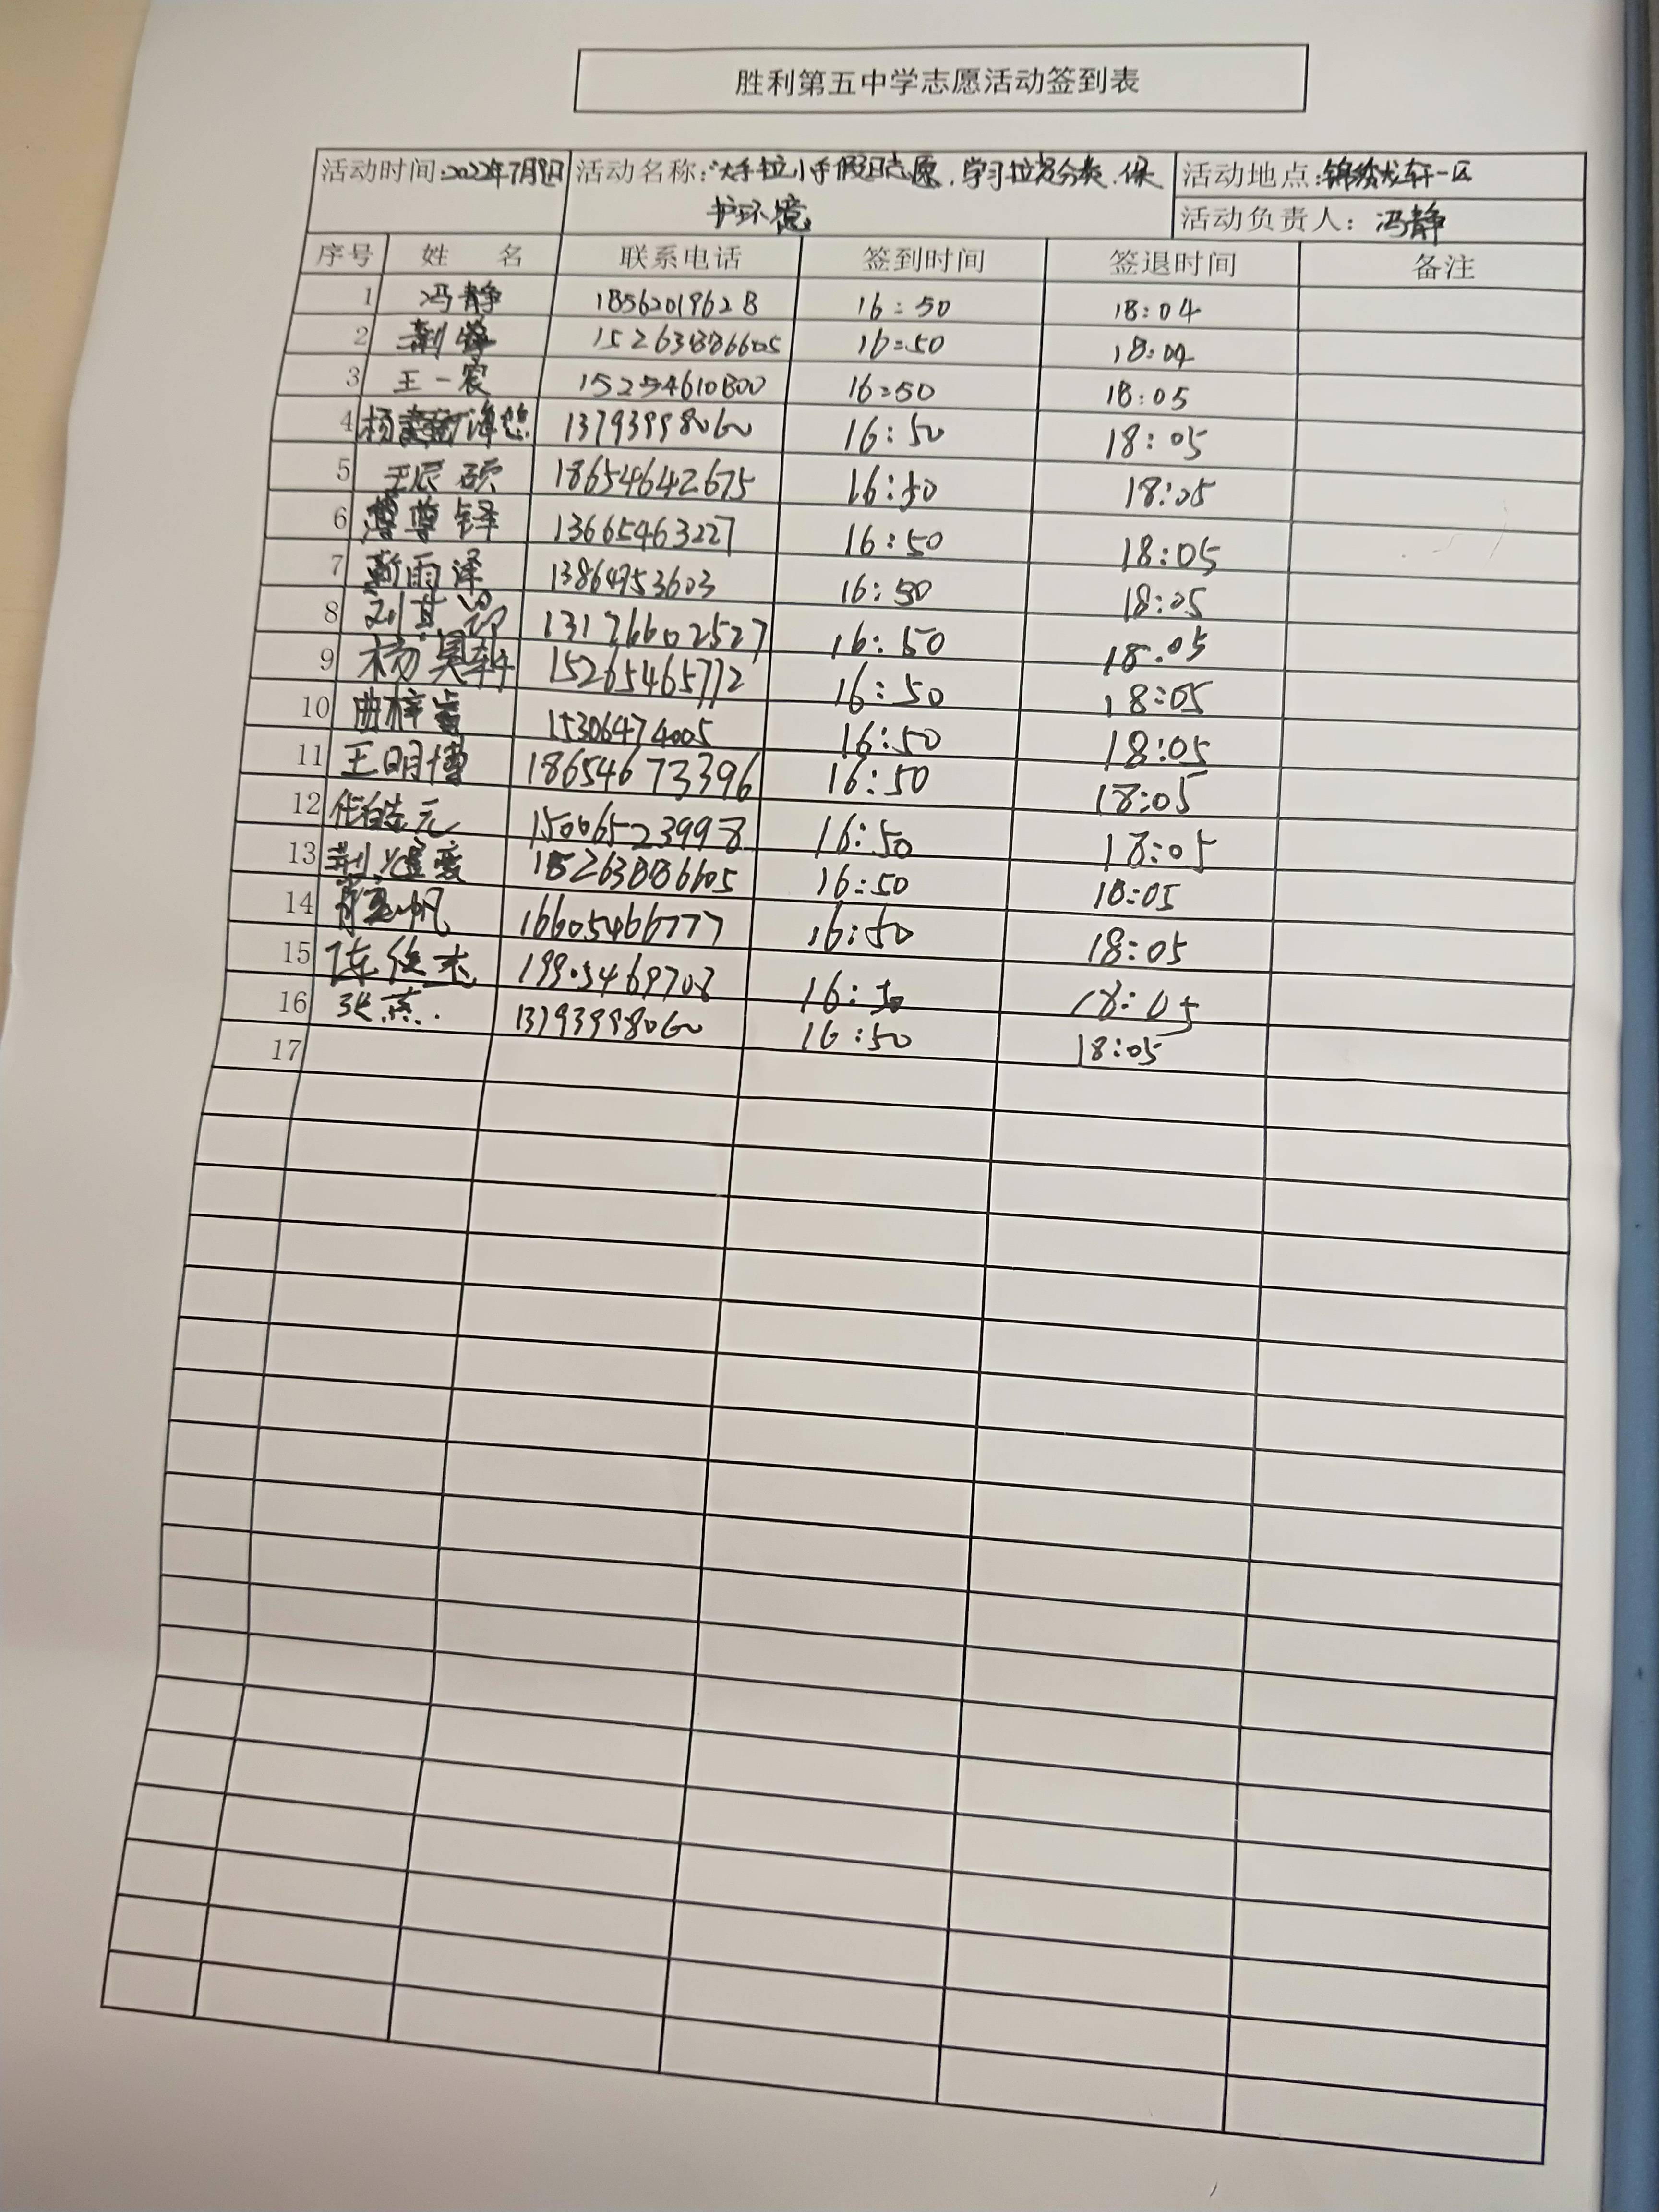 胜利第五中学志愿活动签到表
活动时间:2022年7月9日 活动名称:大手拉小手假日志愿.学习垃圾分类.保 活动地点:锦绣龙轩一区
护环境 活动负责人:冯静
序号 姓 名 联系电话 签到时间 签退时间 备注
1 冯静 18562019628 16:50 18:04
2 15263886605 16:50 18:04
3 王一宸 15254610800 16:50 18:05
4 杨 13793998060 16:50 18:05
5 王辰硕 18654642675 16:50 18:05
6 尊铎 13665463227 16:50 18:05
7 靳雨泽 13864753603 16:50 18:05
8 刘其 13176602527 16:50 18:05
9 杨昊轩 15265465772 16:50 18:05
10 曲梓睿 15306474005 16:50 18:05
11 王明博 18654673396 16:50 18:05
12 元 15006523998 16:50 18:05
13 15263886605 16:50 18:05
14 帆 16605466777 16:50 18:05
15 陈俊杰 19905469708 16:50 18:05
16 张燕 13793998060 16:50 18:05
17